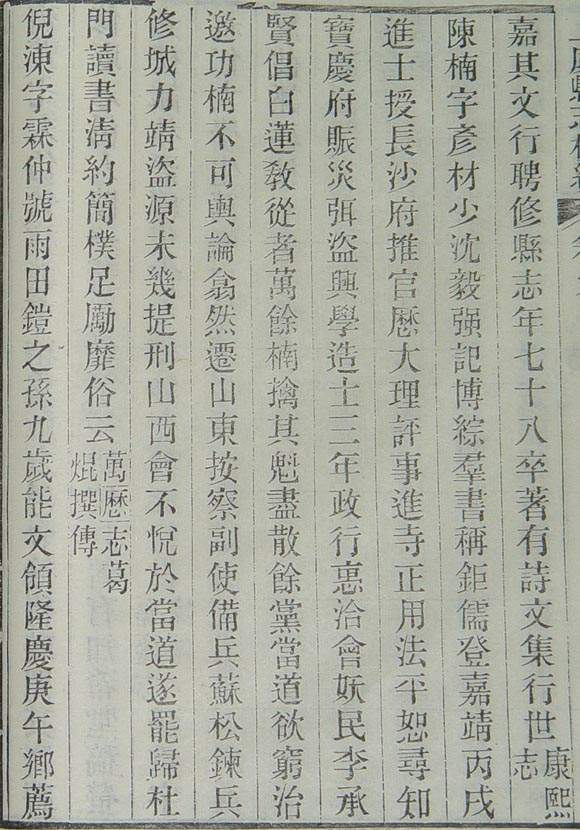 嘉其文行聘修縣志年七十八卒著有詩文集行世康熙志
陳楠字彥材少沈毅强記博綜羣書稱鉅儒登嘉靖丙戌
進士授長沙府推官歴大理評事進寺正用法平恕尋知
寶慶府賑災弭盜興學造士三年政行惠洽會妖民李承
賢倡白蓮敎從者萬餘楠擒其魁盡散餘黨當道欲窮治
邀功楠不可輿論翕然遷山東按察副使備兵蘇松鍊兵
修城力靖盜源未幾提刑山西會不悅於當道遂罷歸杜
門讀書淸約簡樸足勵靡俗云萬歴志葛焜撰傳
倪涷字霖仲號雨田鎧之孫九歲能文領隆慶庚午鄉薦